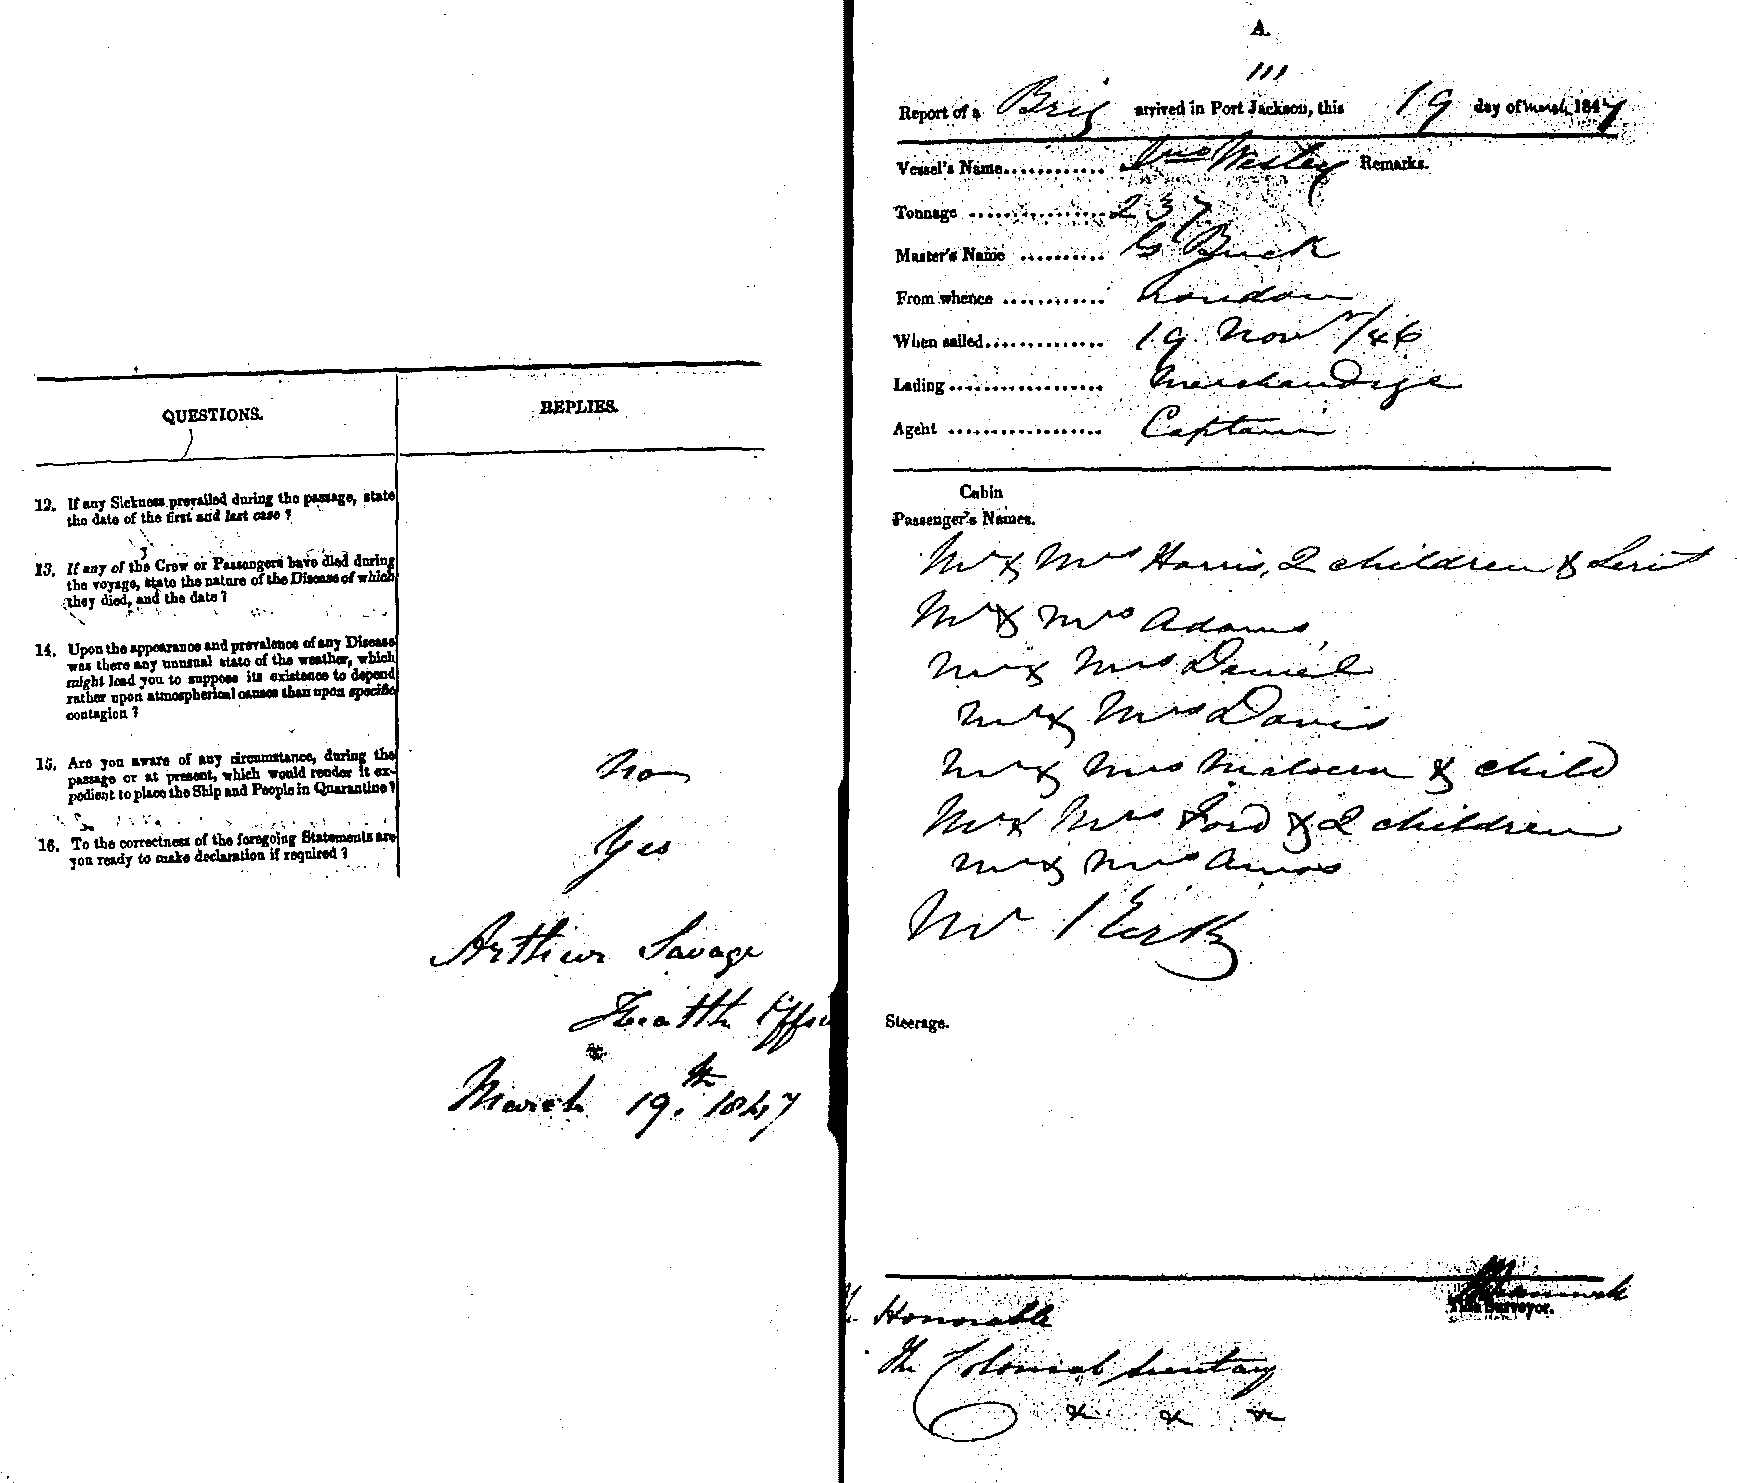 QUESTIONS.
REPLIES.
12. If any Sickness prevailed during the passage, state
the date of the first and last case ?
13. If any of the Crew or Passengers have died during
the voyage, state the nature of the Disease of which
they died, and the date ?
14. Upon the appearance and prevalence of any Disease
was there any unusual state of the weather, which
might lead you to suppose its existence to depend
rather upon atmospherical causes than upon specific
contagion ?
15. Are you aware of any circumstance, during the
passage or at present, which would render it ex-
pedient to place the Ship and People in Quarantine ?
No
16. To the correctness of the foregoing Statements are
you ready to make declaration if required ?
Yes
Arthur Savage
Health Offic
March 19.th 1847
A.
111
Report of a Brig arrived in Port Jackson, this 19 day of March 1847
Vessel's Name............ Jno Wesley Remarks.
Tonnage ................ 237
Master's Name .......... G Buck
From whence ............ London
When sailed.............. 19 Novr/46
Lading.................. Merchandize
Agent .................. Captain
Cabin
Passenger's Names.
Mr & Mrs Harris, 2 children & Servt
Mr & Mrs Adams
Mr & Mrs Daniel
Mr & Mrs Davis
Mr & Mrs & child
Mr & Mrs Ford & 2 children
Mr & Mrs Amos
Mr Kirk
Steerage.
Tide Surveyor.
Honorable
The Colonial Secretary
&c &c &c